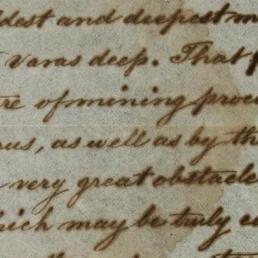 dest and deepest m
varas deep. That
re of mining proce
ous, as well as by th
very great obstacle
hich may be truly c